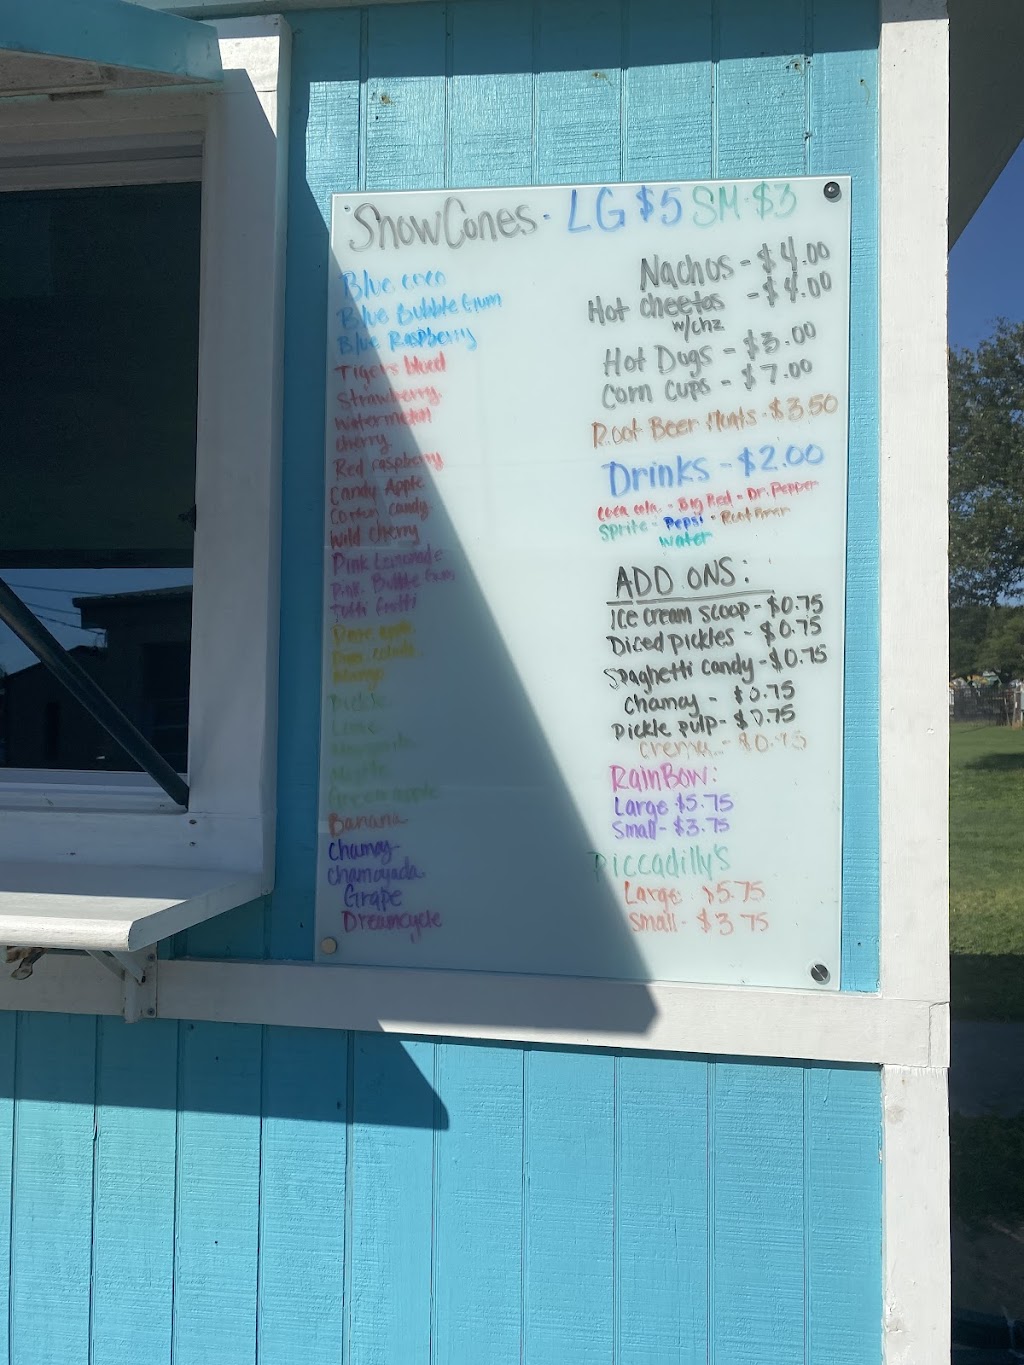 SnowCones - LG $5 SM $3
Blue Bubble Gum
Blue Raspberry
Tigers blood
Strawberry
Watermelon
cherry
Red raspberry
Candy Apple
Cotton candy
Wild cherry
Pink Lemonade
Pink Bubble Gum
Tutti frutti
Mango
Pickle
Lime
Margarita
Mojito
Green apple
Banana
Chamoy
Chamoyada
Grape
Dreamcycle
Nachos - $4.00
Hot cheetos - $4.00
w/chz
Hot Dogs - $3.00
Corn cups - $7.00
Root Beer floats - $3.50
Drinks - $2.00
coca cola - Big Red - Dr. Pepper
Sprite - Pepsi - Root Beer
water
ADD ONS:
Ice cream scoop - $0.75
Diced pickles - $0.75
Spaghetti candy - $0.75
Chamoy - $0.75
Pickle pulp - $0.75
crema - $0.75
RainBow:
Large $5.75
Small - $3.75
Piccadilly's
Large $5.75
Small - $3.75